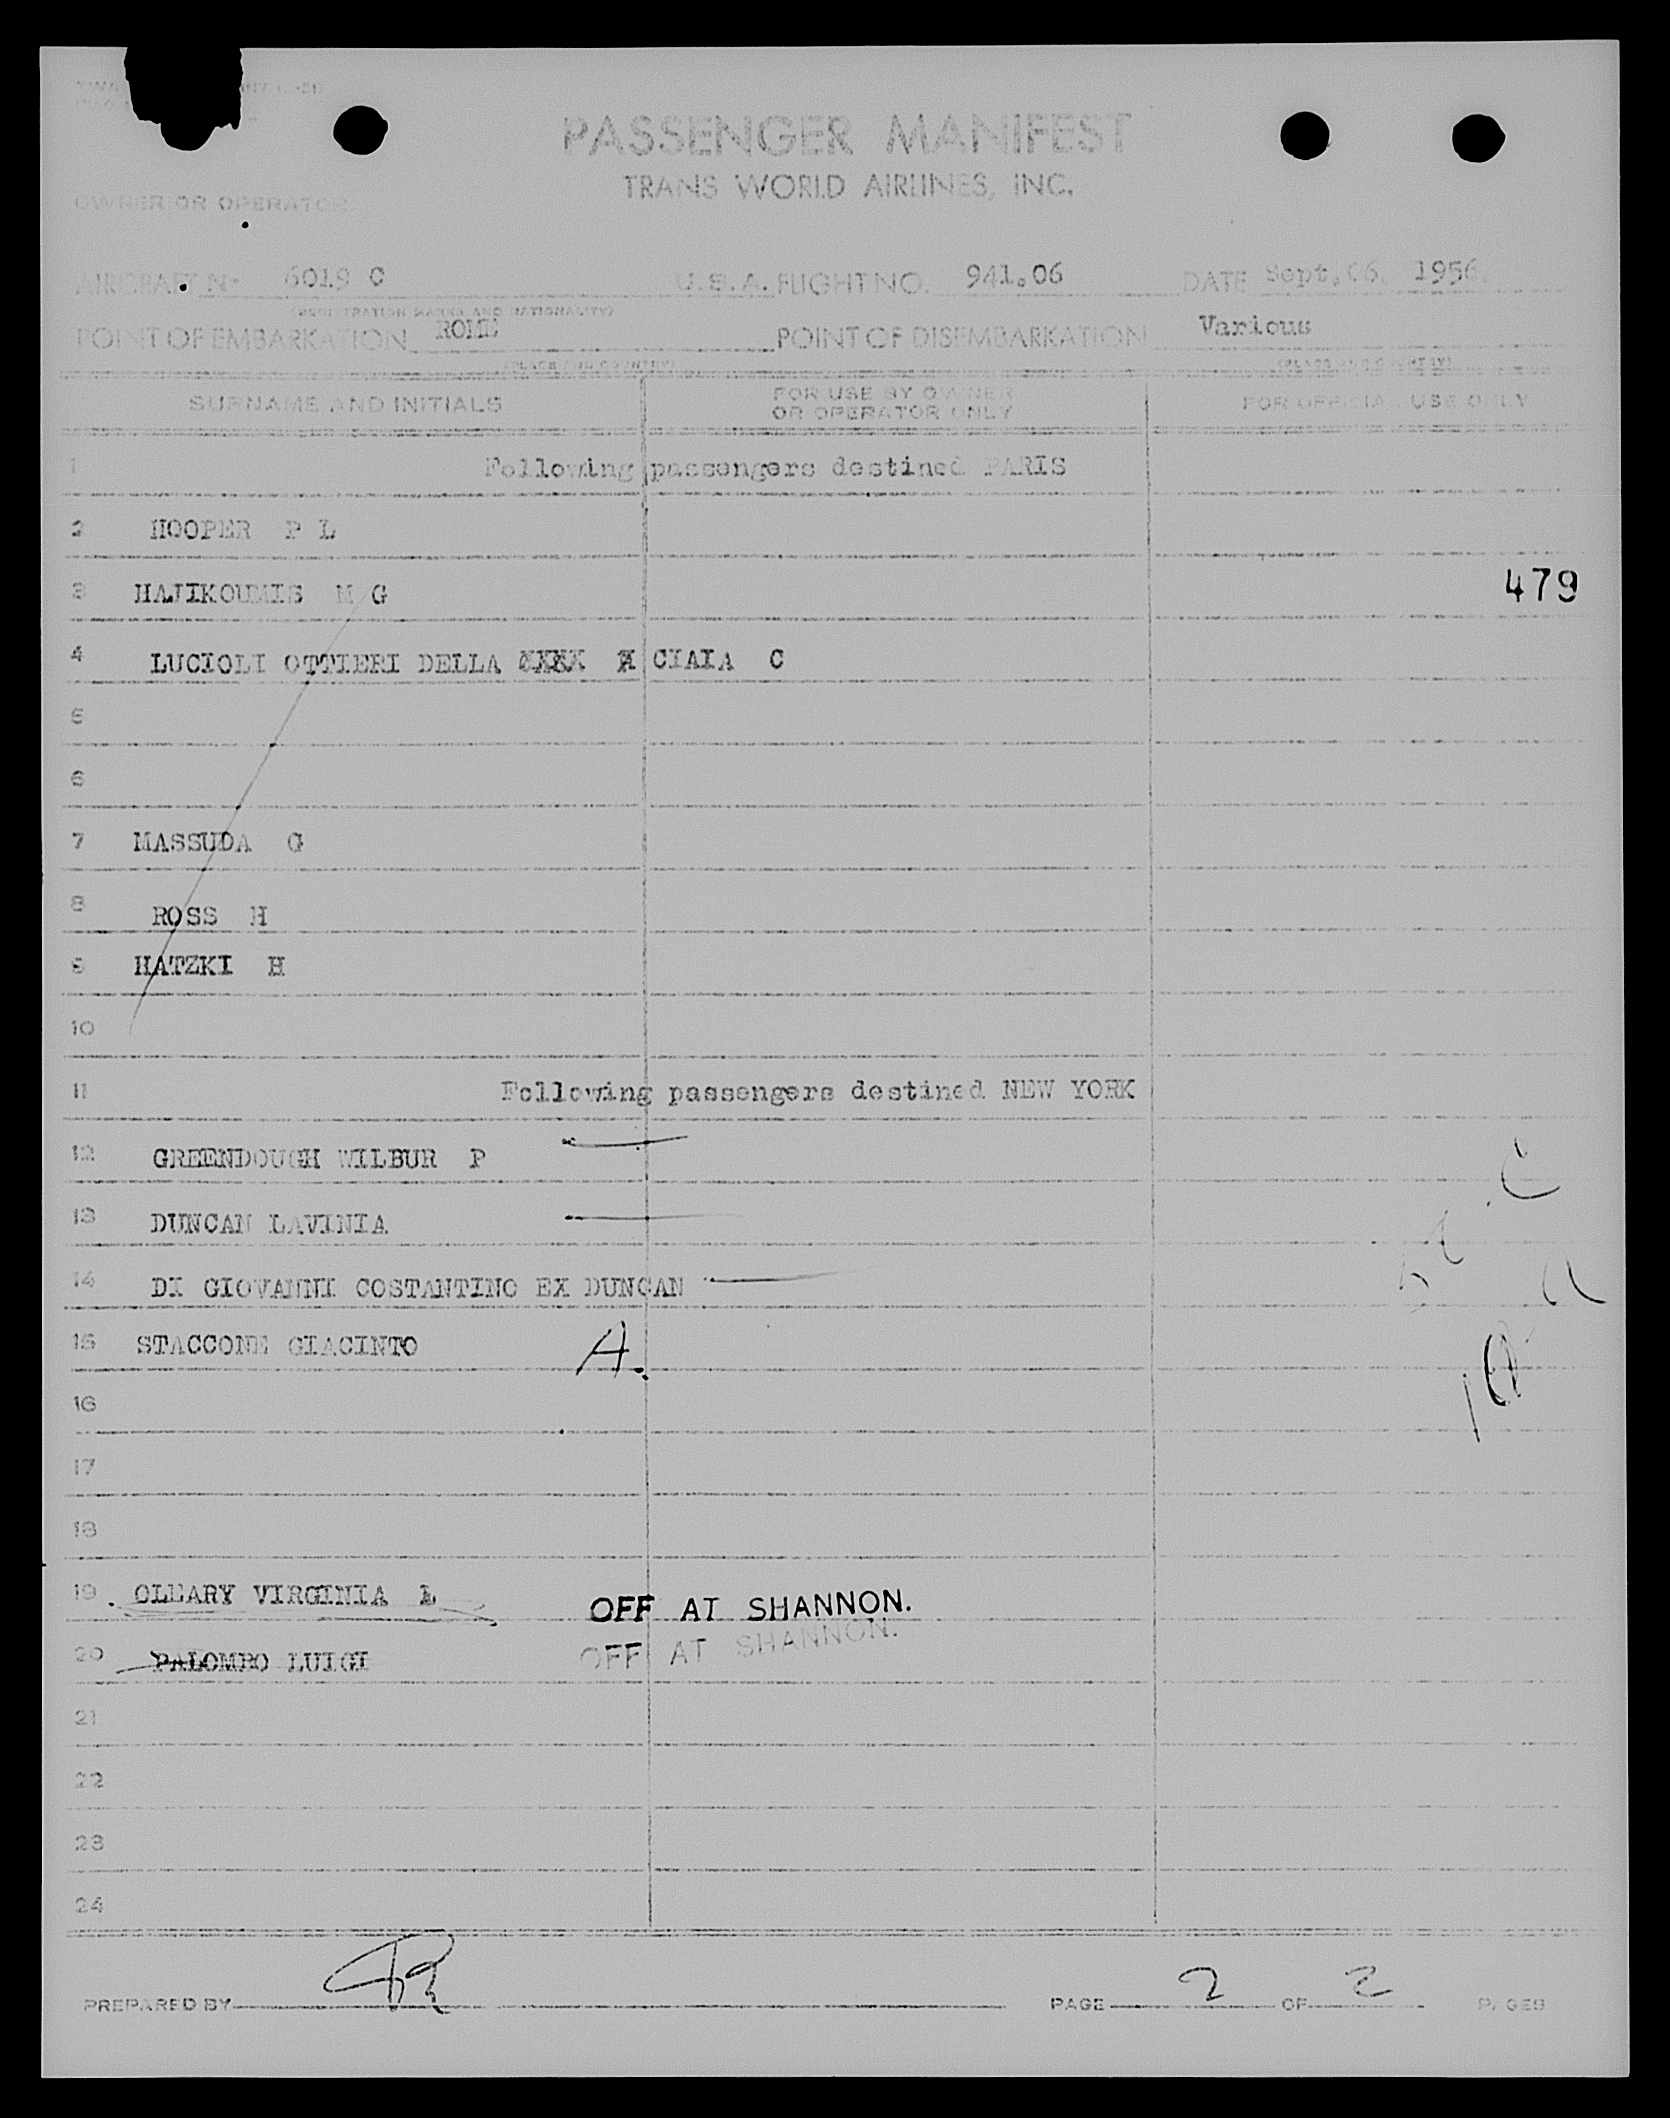 PASSENGER MANIFEST
TRANS WORLD AIRLINES, INC.
OWNER OR OPERATOR
AIRCRAFT Nr 6019 C U. S. A. FLIGHT NO. 941.06 DATE Sept.06. 1956.
(REGISTRATION MARKS AND NATIONALITY)
POINT OF EMBARKATION ROME POINT OF DISEMBARKATION Various
(PLACE AND COUNTRY) (PLACE AND COUNTRY)
SURNAME AND INITIALS FOR USE BY OWNER OR OPERATOR ONLY FOR OFFICIAL USE ONLY
1 Following passengers destined PARIS
2 HOOPER P L
3 HAJIKOUMIS M G 479
4 LUCIOLI OTTIERI DELLA CIAIA C
5
6
7 MASSUDA G
8 ROSS H
9 HATZKI H
10
11 Following passengers destined NEW YORK
12 GREENDOUGH WILBUR P
13 DUNCAN LAVINIA
14 DI GIOVANNI COSTANTINO EX DUNCAN
15 STACCONE GIACINTO A.
16
17
18
19 OLEARY VIRGINIA L OFF AT SHANNON.
20 PALOMBO LUIGI OFF AT SHANNON.
21
22
23
24
PREPARED BY PAGE 2 OF 2 PAGES